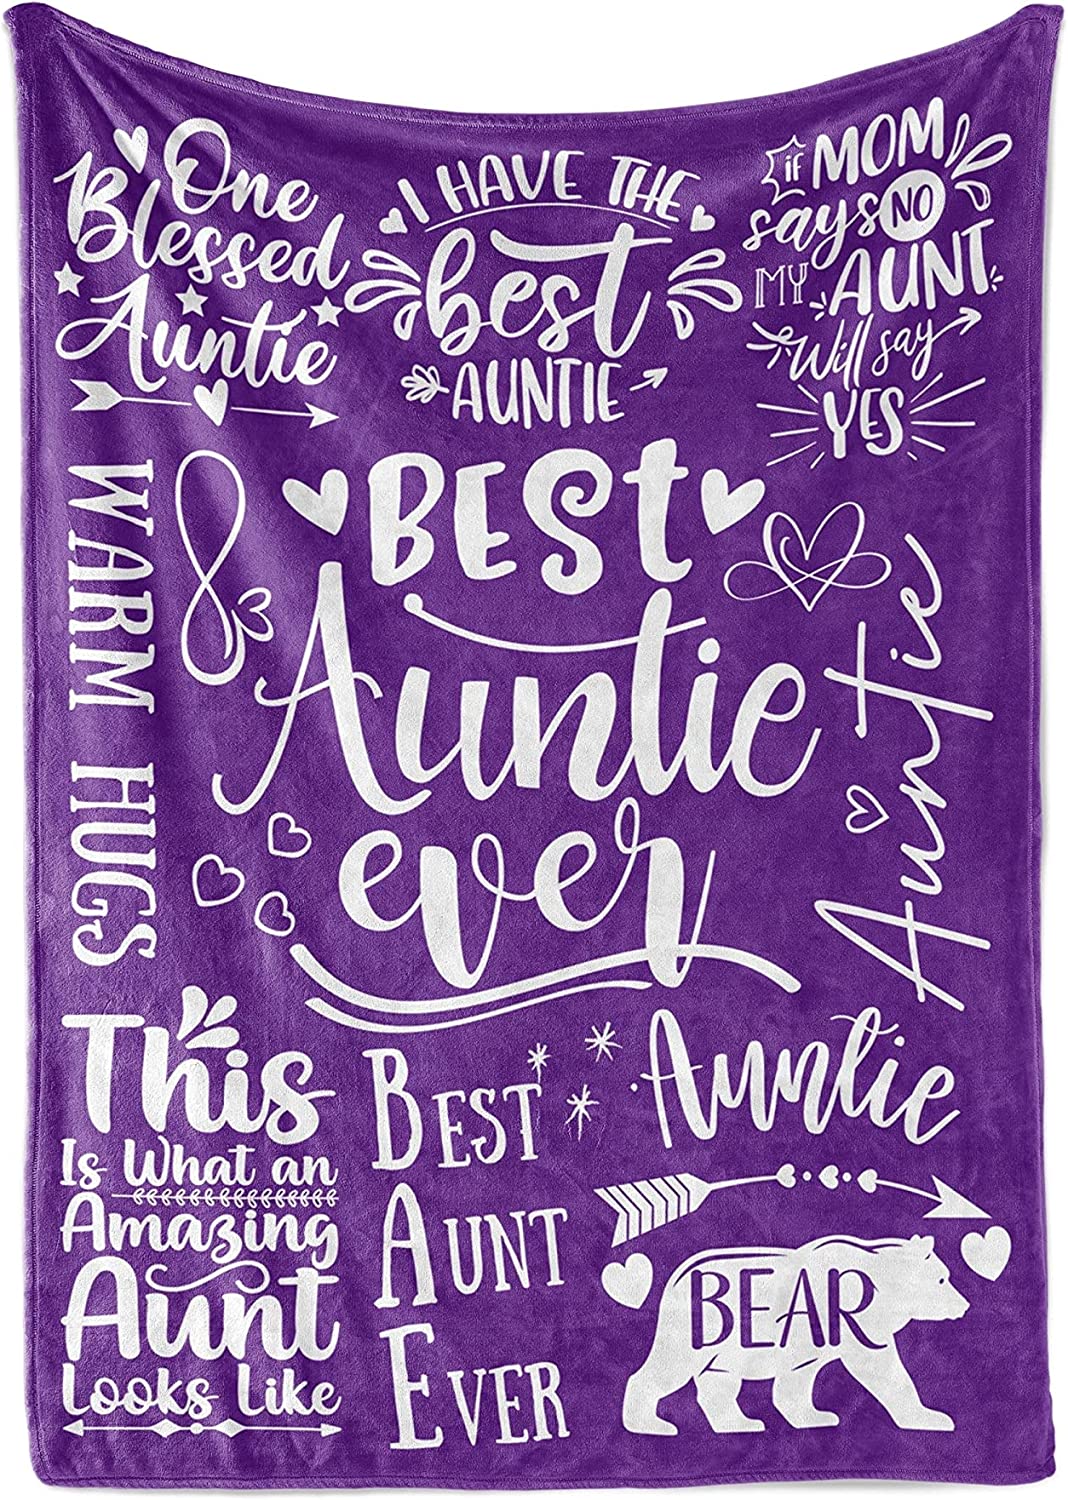 One
Blessed
Auntie
I HAVE THE
best
AUNTIE
if MOM
says NO
MY AUNT
Will say
YES
WARM HUGS
BEST
Auntie
ever
Auntie
This
Is What an
Amazing
Aunt
Looks Like
BEST
AUNT
EVER
Auntie
BEAR